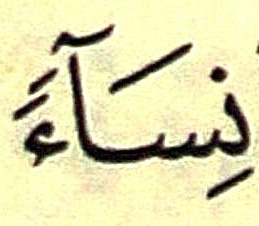 نِسَآءً